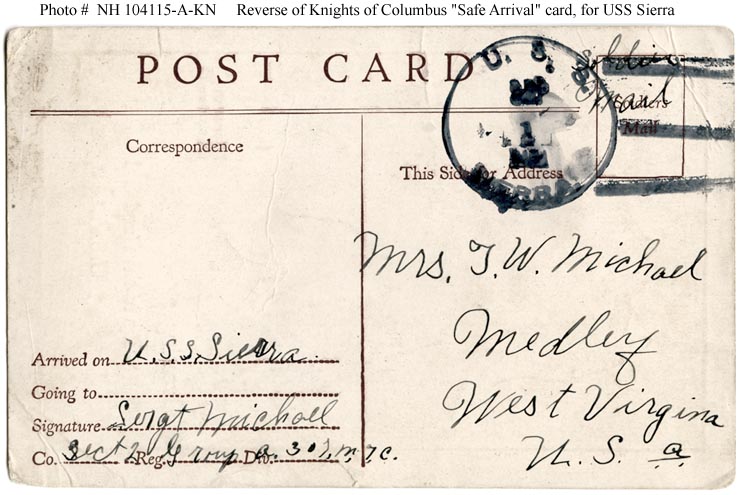 Photo # NH 104115-A-KN Reverse of Knights of Columbus "Safe Arrival" card, for USS Sierra
POST CARD
U. S. S.
1
SIERRA
Soldier
Mail
Soldiers
Mail
Correspondence
This Side for Address
Mrs. T. W. Michael
Medley
West Virginia
U. S. a.
Arrived on U.S.S. Sierra
Going to
Signature Sergt Michael
Co. Sect 2 Reg. Group a. Div. 301, m. T. C.